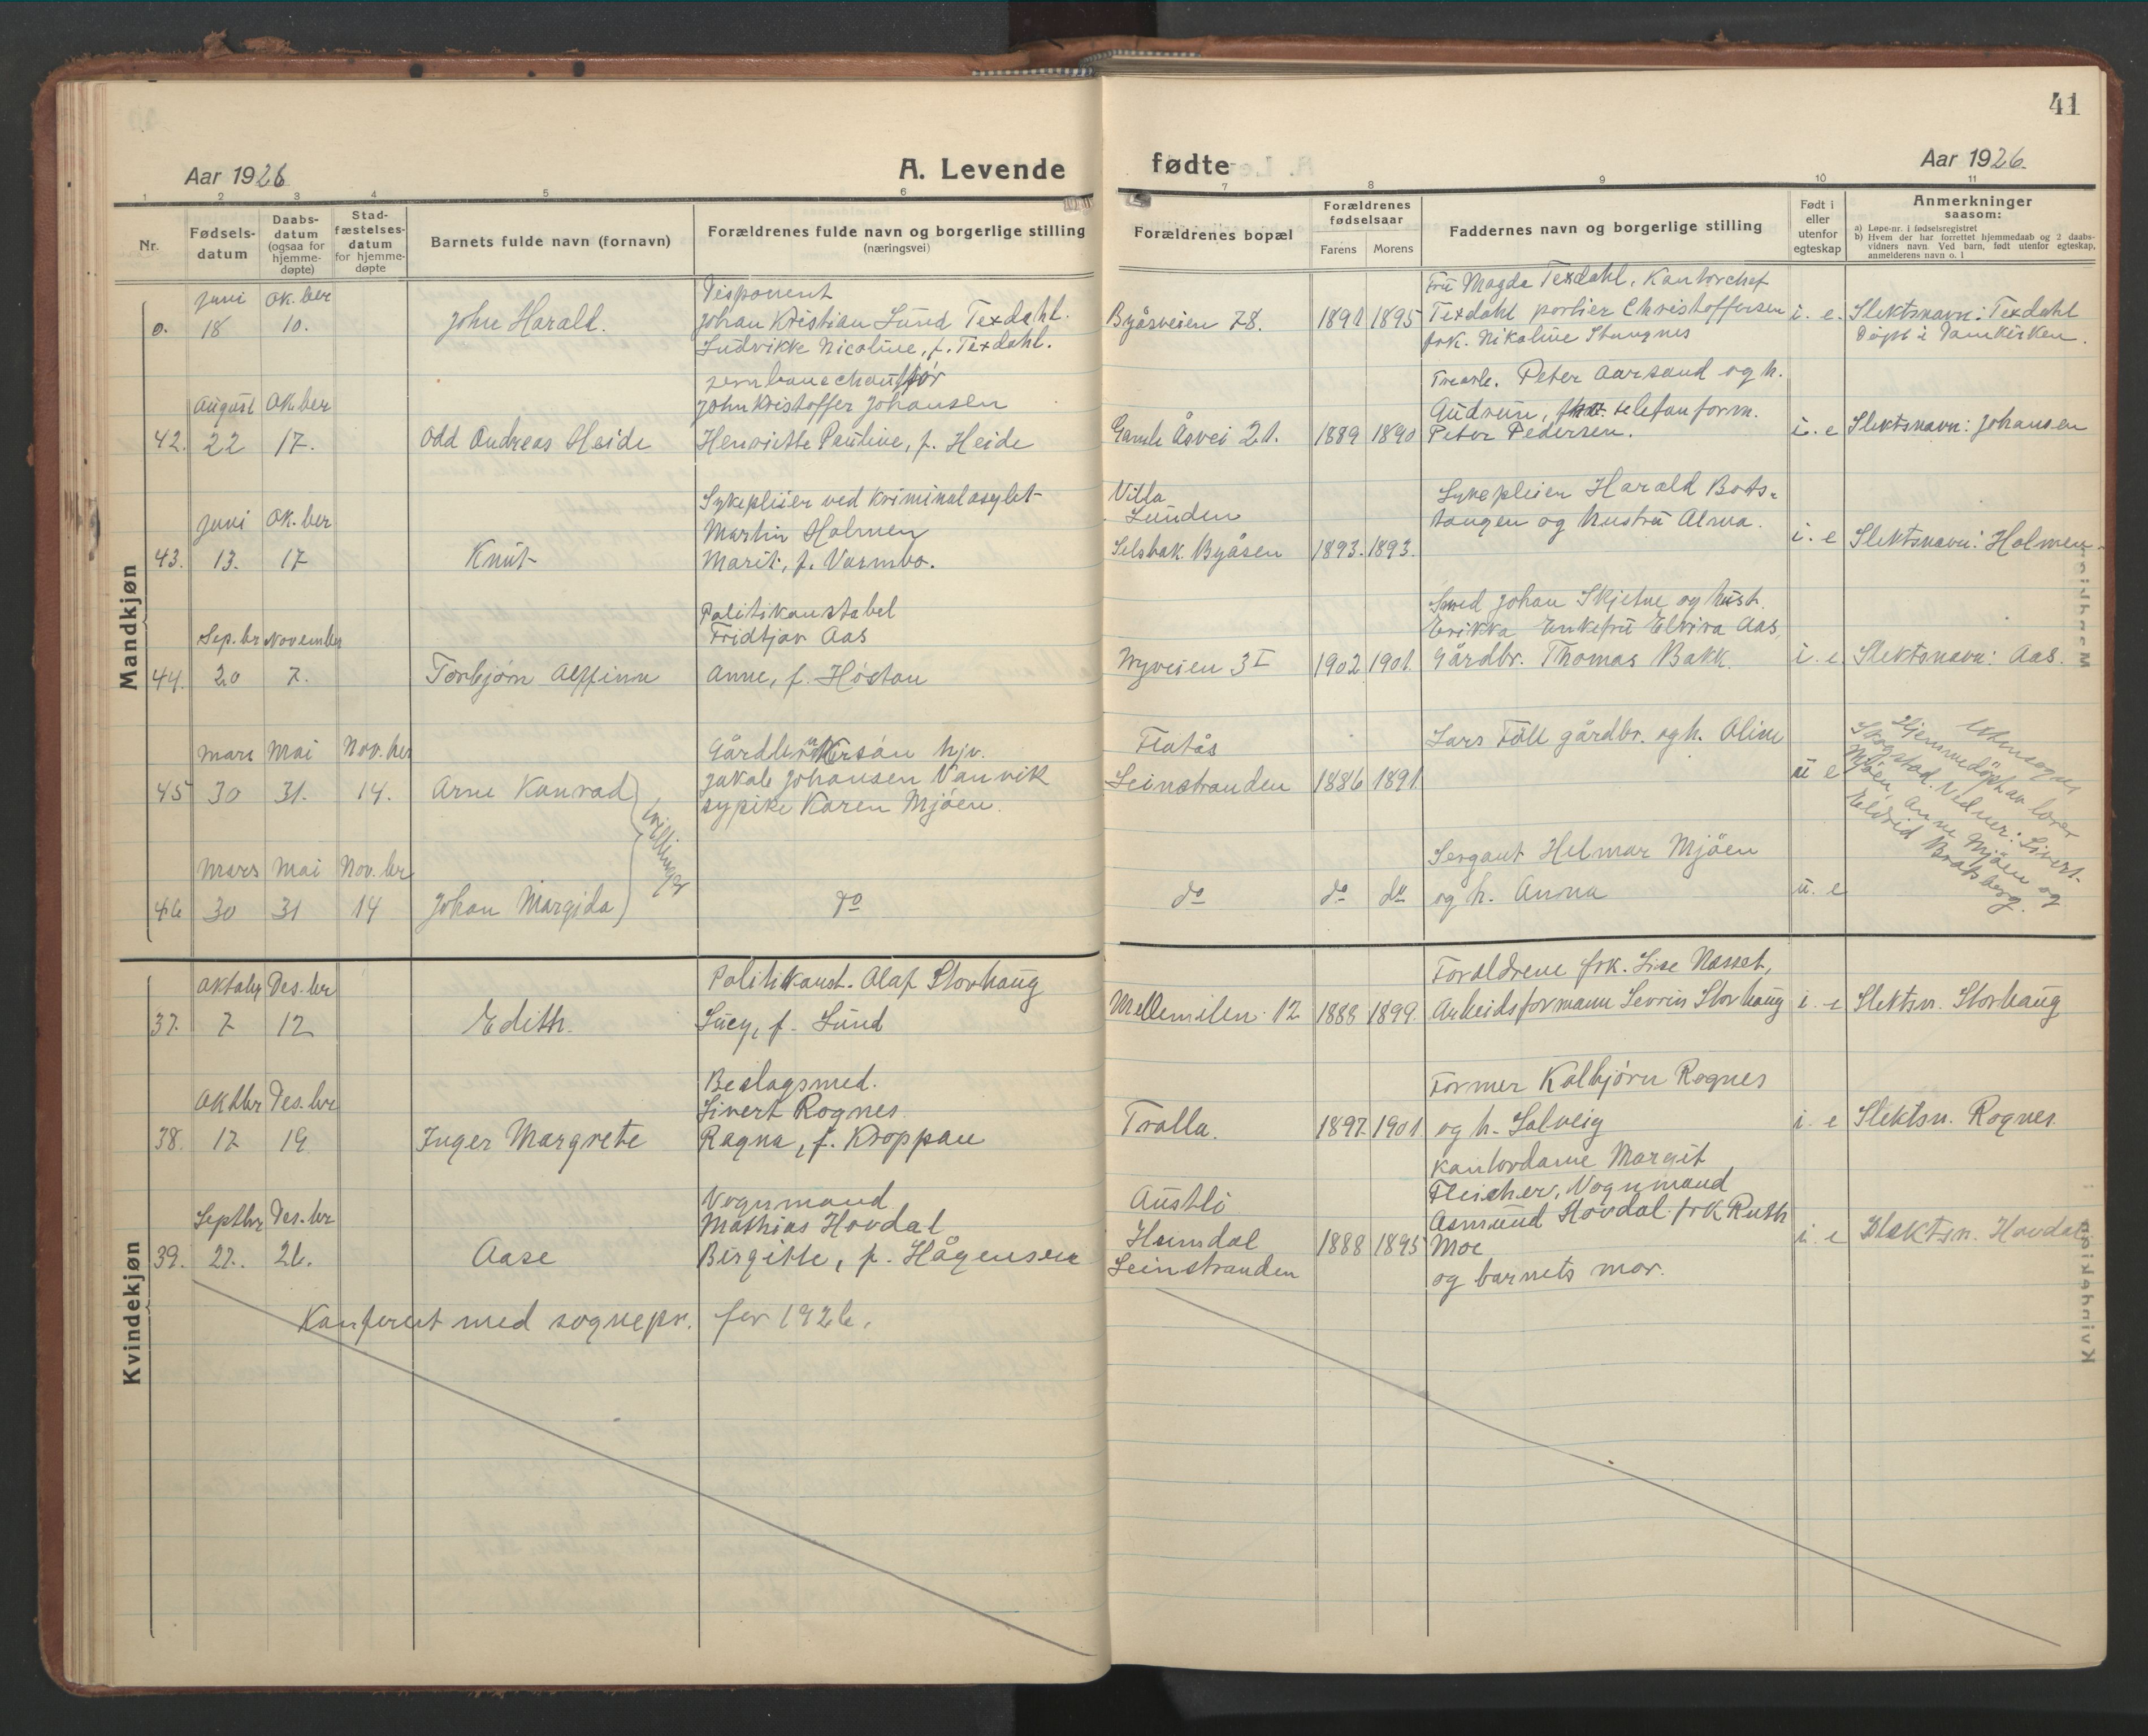 41
Aar 1926
A. Levende
fødte
Aar 1926.
1 2 3 4 5 6 7 8 9 10 11
Nr.
Fødsels-
datum
Daabs-
datum
(ogsaa for
hjemme-
døpte)
Stad-
fæstelses-
datum
for hjemme-
døpte
Barnets fulde navn (fornavn)
Forældrenes fulde navn og borgerlige stilling
(næringsvei)
Forældrenes bopæl
Forældrenes
fødselsaar
Farens Morens
Faddernes navn og borgerlige stilling
Født i
eller
utenfor
egteskap
Anmerkninger
saasom:
a) Løpe-nr. i fødselsregistret
b) Hvem der har forrettet hjemmedaab og 2 daabs-
vidners navn. Ved barn, født utenfor egteskap,
anmelderens navn o. l
Mandkjøn
0.
juni
18
Ok.ber
10.
John Harald.
Disponent
Johan Kristian Lund Texdahl.
Ludvikke Nicoline, f. Texdahl.
Byåsveien 78.
1891 1895
Fru Magda Texdahl, Kontorchef
Texdahl portier Christoffersen
frk. Nikoline Stangnes
i. e.
Slektsnavn: Texdahl
Døpt i Domkirken.
42.
August
22
Ok.ber
17.
Odd Andreas Heide
jernbanechauffør
John Kristoffer Johansen
Henriette Pauline, f. Heide
Gamle Åsvei 21.
1889 1890
Trearb. Peter Aarsand og h.
Gudrun, telefonform.
Peter Pedersen.
i. e
Slektsnavn: Johansen
43.
juni
13.
Ok.ber
17
Knut
Sykepleier ved Kriminalasylet
Martin Holmen
Marit, f. Varmbo.
Villa
Lunden
Selsbak Byåsen
1893. 1893.
Sykepleier Harald Bots-
tangen og hustru Alma.
i. e
Slektsnavn: Holmen
44.
Sep.br
20
November
7.
Torbjørn Alffinn
Politikonstabel
Fridtjov Aas
Anne, f. Høstan
Nyveien 3 I
1902 1901
Smed Johan Skjetne og hust.
Erikka Enkefru Elvira Aas,
Gårdbr. Thomas Bakk.
i. e
Slektsnavn: Aas.
45
Mars
30
Mai
31.
Nov.ber
14.
Arne Konrad
Jakob Johansen Vanvik
sypike Karen Mjøen.
Flatås
Leinstranden
1886 1891.
Lars Föll gårdbr. og h. Oline
u e
46
Mars
30
Mai
31
Nov.br
14
Johan Margido
tvillinger
do
do
do do
Sergant Helmar Mjöen
og h. Anna
u. e
Utensogns
Hjemmedöpt av
Skogstad. Vidner: Sivert
Mjöen, Anne Mjöen og
Eldrid Bratsberg.
Kvindekjøn
37.
Oktober
7
Des.br
12
Edith.
Politikonst. Olaf Storhaug
Lucy, f. Lund
Mellemilen 12
1888 1899.
Foreldrene frk. Lise Nasset,
Arbeidsformann Sevrin Storhaug
i. e
Slektsn. Storhaug
38.
Oktbr
17
Des.br
19
Inger Margrete
Beslagsmed.
Sivert Rognes
Ragna, f. Kroppan
Trolla.
1897. 1901
Former Kolbjørn Rognes
og h. Solveig
i. e
Slektsn. Rognes.
39.
Septbr
22.
Des.br
26.
Aase
Vognmand
Mathias Hovdal
Birgitte, f. Hågensen
Austli
Heimdal
Leinstranden
1888 1895
Kontordame Margit
Fleicher, Vognmand
Asmund Hovdal. frk Ruth
Moe
og barnets mor.
i. e
Slektsn. Hovdal
Konferert med sognepr. for 1926.